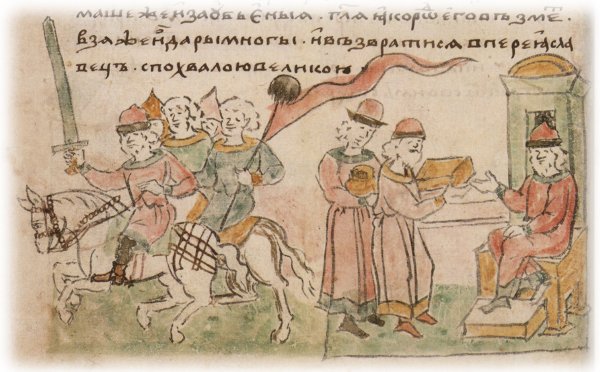 маше же и заѡбьеныꙗ · гл҃ꙗ ꙗко рѡⷣ его възме ·
взѧ же и дары многы · и възвратисѧ в переꙗсла
вець · с похвалою великою